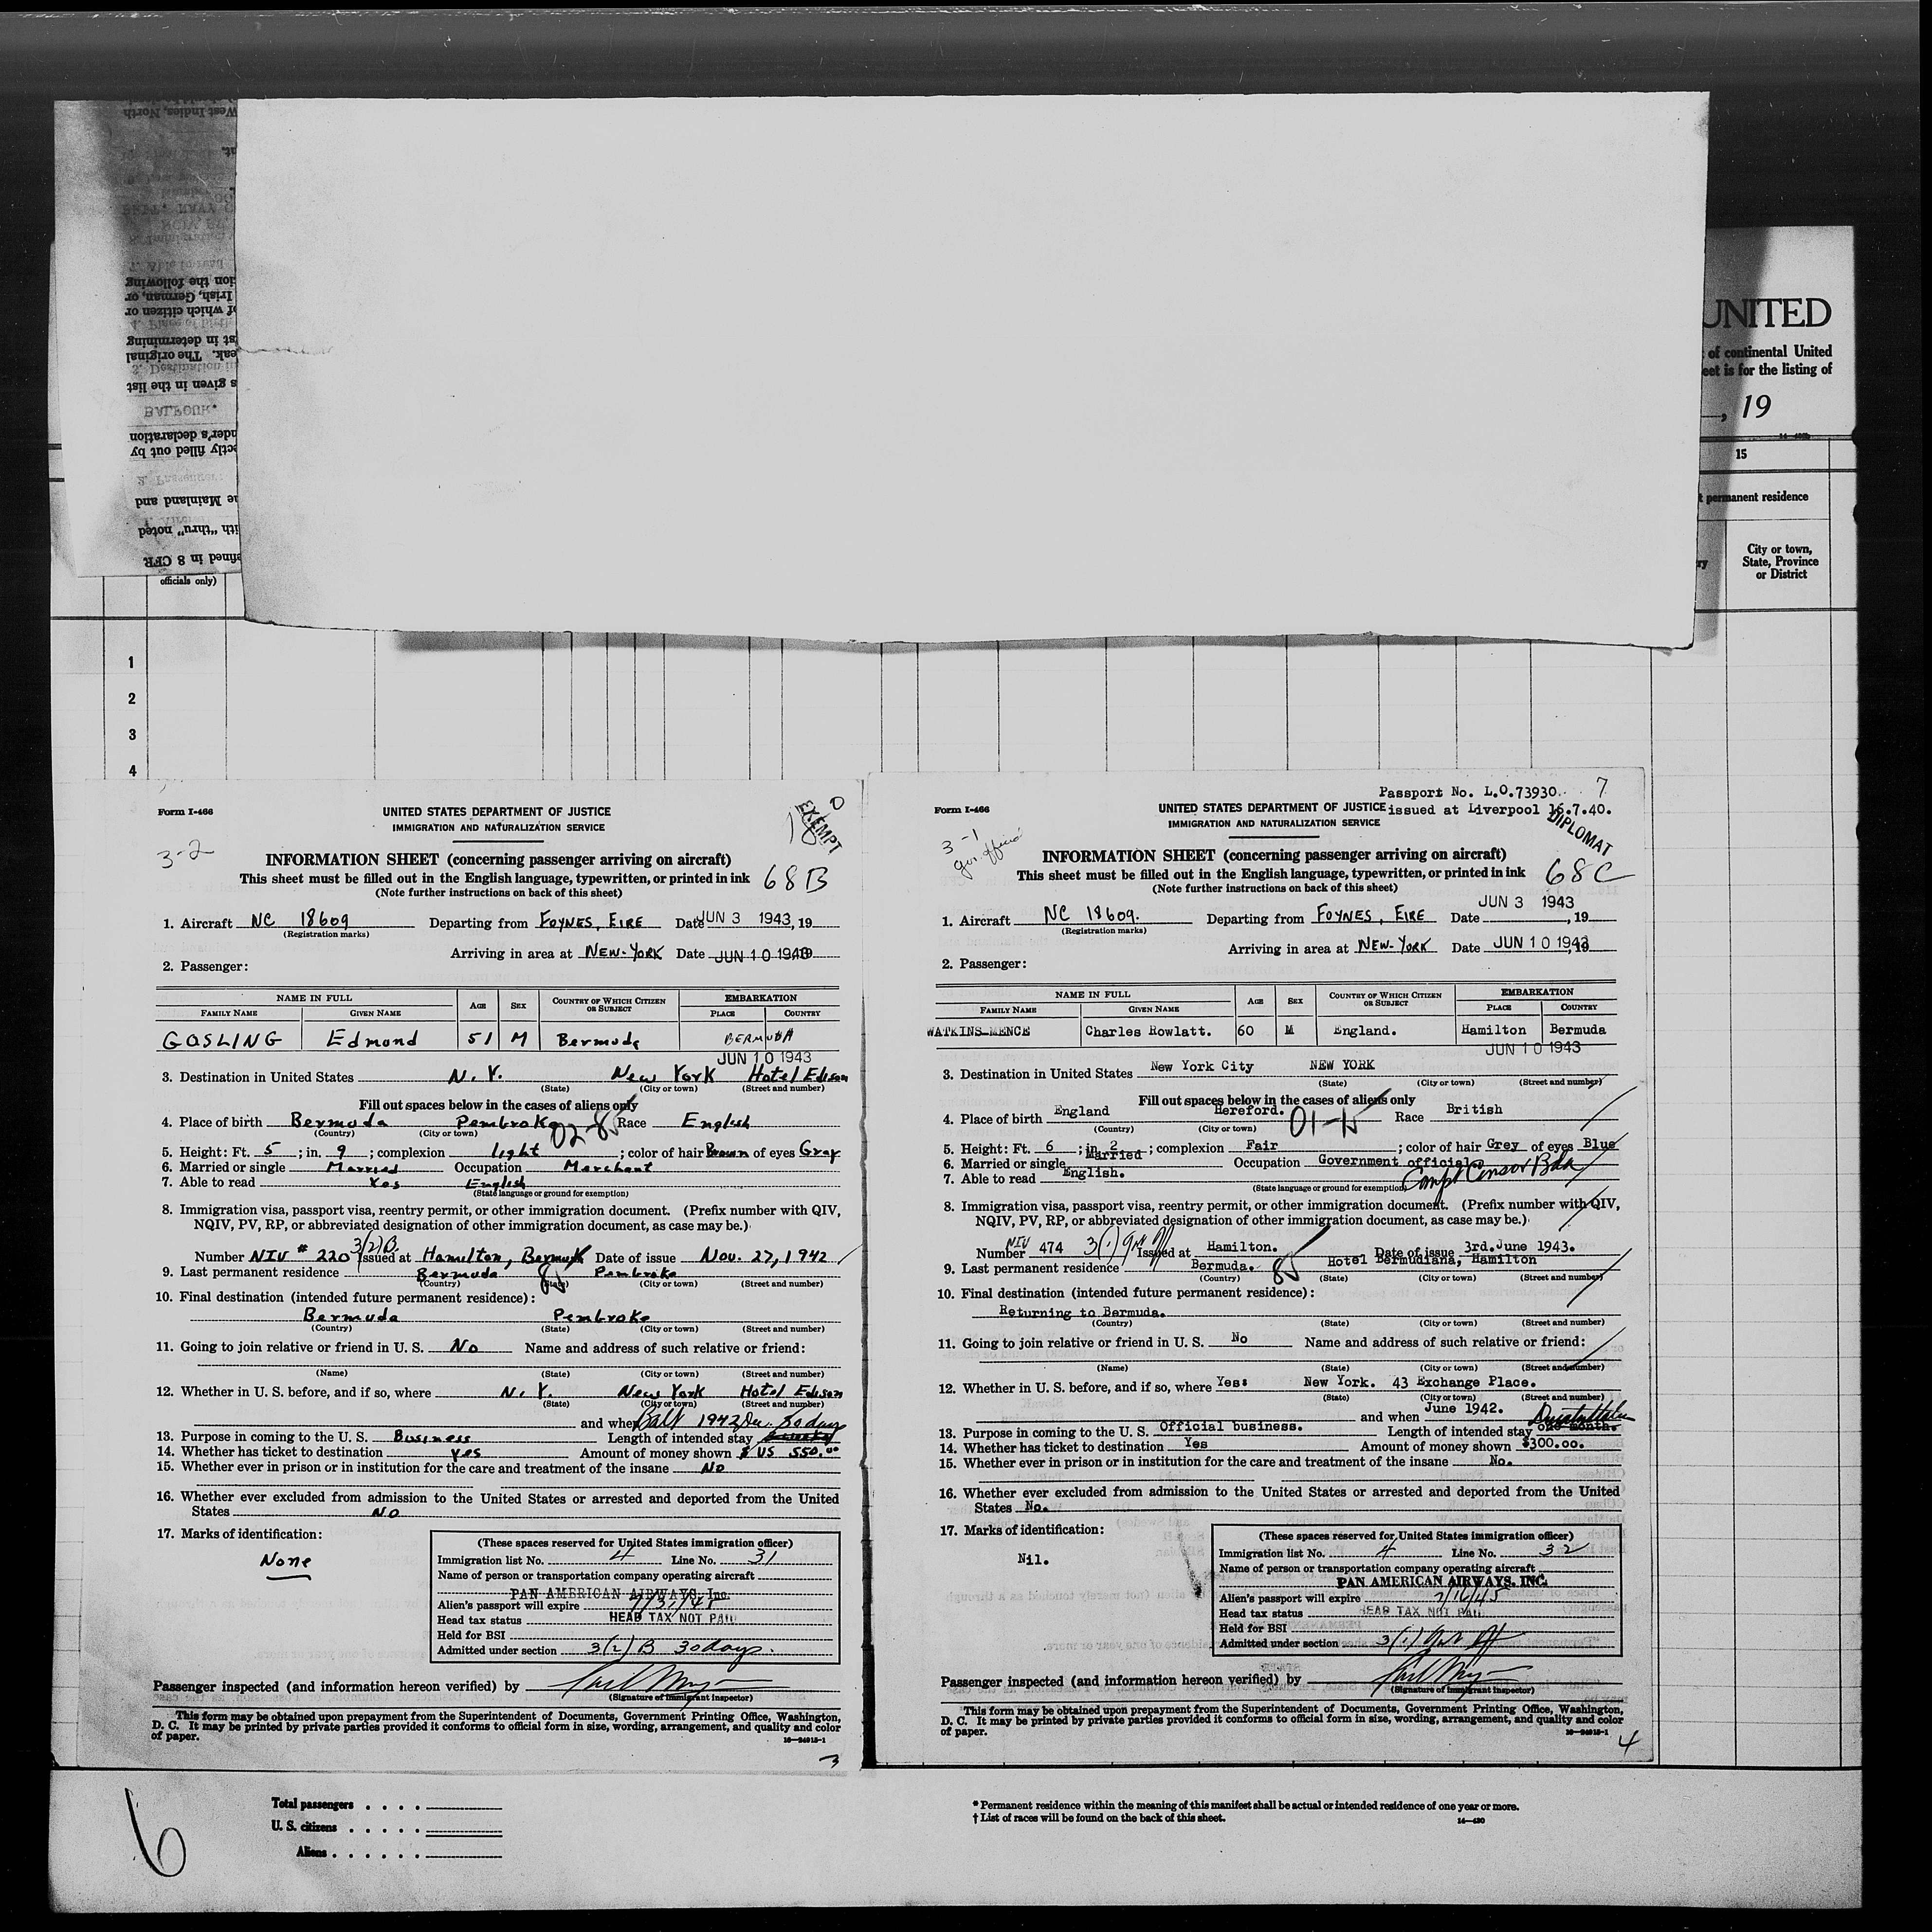 West Indies, North
7. Able to read
tion the following
Irish, German, or
of which citizen or
4. Place of birth
st in determining
eak. The original
3. Destination in
s given in the list
BALFOUR.
nder's declaration
ectly filled out by
2. Passenger:
he Mainland and
ith "thru" noted
efined in 8 CFR
officials only)
UNITED
of continental United
eet is for the listing of
, 19
15
t permanent residence
City or town,
State, Province
or District
1
2
3
4
Form I-466
UNITED STATES DEPARTMENT OF JUSTICE
IMMIGRATION AND NATURALIZATION SERVICE
EXEMPT
3-2
INFORMATION SHEET (concerning passenger arriving on aircraft)
This sheet must be filled out in the English language, typewritten, or printed in ink
68B
(Note further instructions on back of this sheet)
1. Aircraft NC 18609 Departing from FOYNES, EIRE Date JUN 3 1943, 19
(Registration marks)
Arriving in area at NEW-YORK Date JUN 10 1943 19
2. Passenger:
NAME IN FULL AGE SEX COUNTRY OF WHICH CITIZEN OR SUBJECT EMBARKATION
FAMILY NAME GIVEN NAME PLACE COUNTRY
GOSLING Edmond 51 M Bermuda BERMUDA
JUN 10 1943
3. Destination in United States N.Y. New York Hotel Edison
(State) (City or town) (Street and number)
Fill out spaces below in the cases of aliens only
4. Place of birth Bermuda Pembroke Race English
(Country) (City or town)
02-85
5. Height: Ft. 5; in. 9; complexion light; color of hair Brown of eyes Gray
6. Married or single Married Occupation Merchant
7. Able to read Yes English
(State language or ground for exemption)
8. Immigration visa, passport visa, reentry permit, or other immigration document. (Prefix number with QIV,
NQIV, PV, RP, or abbreviated designation of other immigration document, as case may be.)
3(2)B
Number NIV # 220 Issued at Hamilton, Bermuda Date of issue Nov. 27, 1942
9. Last permanent residence Bermuda 85 Pembroke
(Country) (State) (City or town) (Street and number)
10. Final destination (intended future permanent residence):
Bermuda Pembroke
(Country) (State) (City or town) (Street and number)
11. Going to join relative or friend in U. S. No Name and address of such relative or friend:
(Name) (State) (City or town) (Street and number)
12. Whether in U. S. before, and if so, where N.Y. New York Hotel Edison
(State) (City or town) (Street and number)
and when Balt 1942 Dec. 30 days
13. Purpose in coming to the U. S. Business Length of intended stay
14. Whether has ticket to destination Yes Amount of money shown $ US 550.00
15. Whether ever in prison or in institution for the care and treatment of the insane No
16. Whether ever excluded from admission to the United States or arrested and deported from the United
States NO
17. Marks of identification:
None
(These spaces reserved for United States immigration officer)
Immigration list No. 4 Line No. 31
Name of person or transportation company operating aircraft
PAN AMERICAN AIRWAYS, Inc.
Alien's passport will expire 7/31/45
Head tax status HEAD TAX NOT PAID
Held for BSI
Admitted under section 3(2)B 30 days.
Passenger inspected (and information hereon verified) by
(Signature of immigrant inspector)
This form may be obtained upon prepayment from the Superintendent of Documents, Government Printing Office, Washington,
D. C. It may be printed by private parties provided it conforms to official form in size, wording, arrangement, and quality and color
of paper.
16—24015-1
3
Passport No. L.O.73930. 7
Form I-466
UNITED STATES DEPARTMENT OF JUSTICE issued at Liverpool 16.7.40.
IMMIGRATION AND NATURALIZATION SERVICE
DIPLOMAT
3-1
gov. official
INFORMATION SHEET (concerning passenger arriving on aircraft)
This sheet must be filled out in the English language, typewritten, or printed in ink
68C
(Note further instructions on back of this sheet)
JUN 3 1943
1. Aircraft NC 18609. Departing from FOYNES, EIRE Date , 19
(Registration marks)
Arriving in area at NEW-YORK Date JUN 10 1943, 19
2. Passenger:
NAME IN FULL AGE SEX COUNTRY OF WHICH CITIZEN OR SUBJECT EMBARKATION
FAMILY NAME GIVEN NAME PLACE COUNTRY
WATKINS-MENCE Charles Rowlatt. 60 M England. Hamilton Bermuda
JUN 10 1943
3. Destination in United States New York City NEW YORK
(State) (City or town) (Street and number)
Fill out spaces below in the cases of aliens only
4. Place of birth England Hereford. Race British
(Country) (City or town)
01-15
5. Height: Ft. 6; in. 2; complexion Fair; color of hair Grey of eyes Blue
6. Married or single Married Occupation Government official.
7. Able to read English.
(State language or ground for exemption)
Compt Censor Bda
8. Immigration visa, passport visa, reentry permit, or other immigration document. (Prefix number with QIV,
NQIV, PV, RP, or abbreviated designation of other immigration document, as case may be.)
Number NIV 474 3(1) Issued at Hamilton. Date of issue 3rd. June 1943.
9. Last permanent residence Bermuda. 85 Hotel Bermudiana, Hamilton
(Country) (State) (City or town) (Street and number)
10. Final destination (intended future permanent residence):
Returning to Bermuda.
(Country) (State) (City or town) (Street and number)
11. Going to join relative or friend in U. S. No Name and address of such relative or friend:
(Name) (State) (City or town) (Street and number)
12. Whether in U. S. before, and if so, where Yes: New York. 43 Exchange Place.
(State) (City or town) (Street and number)
and when June 1942.
13. Purpose in coming to the U. S. Official business. Length of intended stay one month.
14. Whether has ticket to destination Yes Amount of money shown $300.00.
15. Whether ever in prison or in institution for the care and treatment of the insane No.
16. Whether ever excluded from admission to the United States or arrested and deported from the United
States No.
17. Marks of identification:
Nil.
(These spaces reserved for United States immigration officer)
Immigration list No. 4 Line No. 32
Name of person or transportation company operating aircraft
PAN AMERICAN AIRWAYS, INC.
Alien's passport will expire 7/16/45
Head tax status HEAD TAX NOT PAID
Held for BSI
Admitted under section 3(1)
Passenger inspected (and information hereon verified) by
(Signature of immigrant inspector)
This form may be obtained upon prepayment from the Superintendent of Documents, Government Printing Office, Washington,
D. C. It may be printed by private parties provided it conforms to official form in size, wording, arrangement, and quality and color
of paper.
16—24015-1
4
6
Total passengers . . . .
U. S. citizens . . . . .
Aliens . . . . . .
* Permanent residence within the meaning of this manifest shall be actual or intended residence of one year or more.
† List of races will be found on the back of this sheet.
14—430